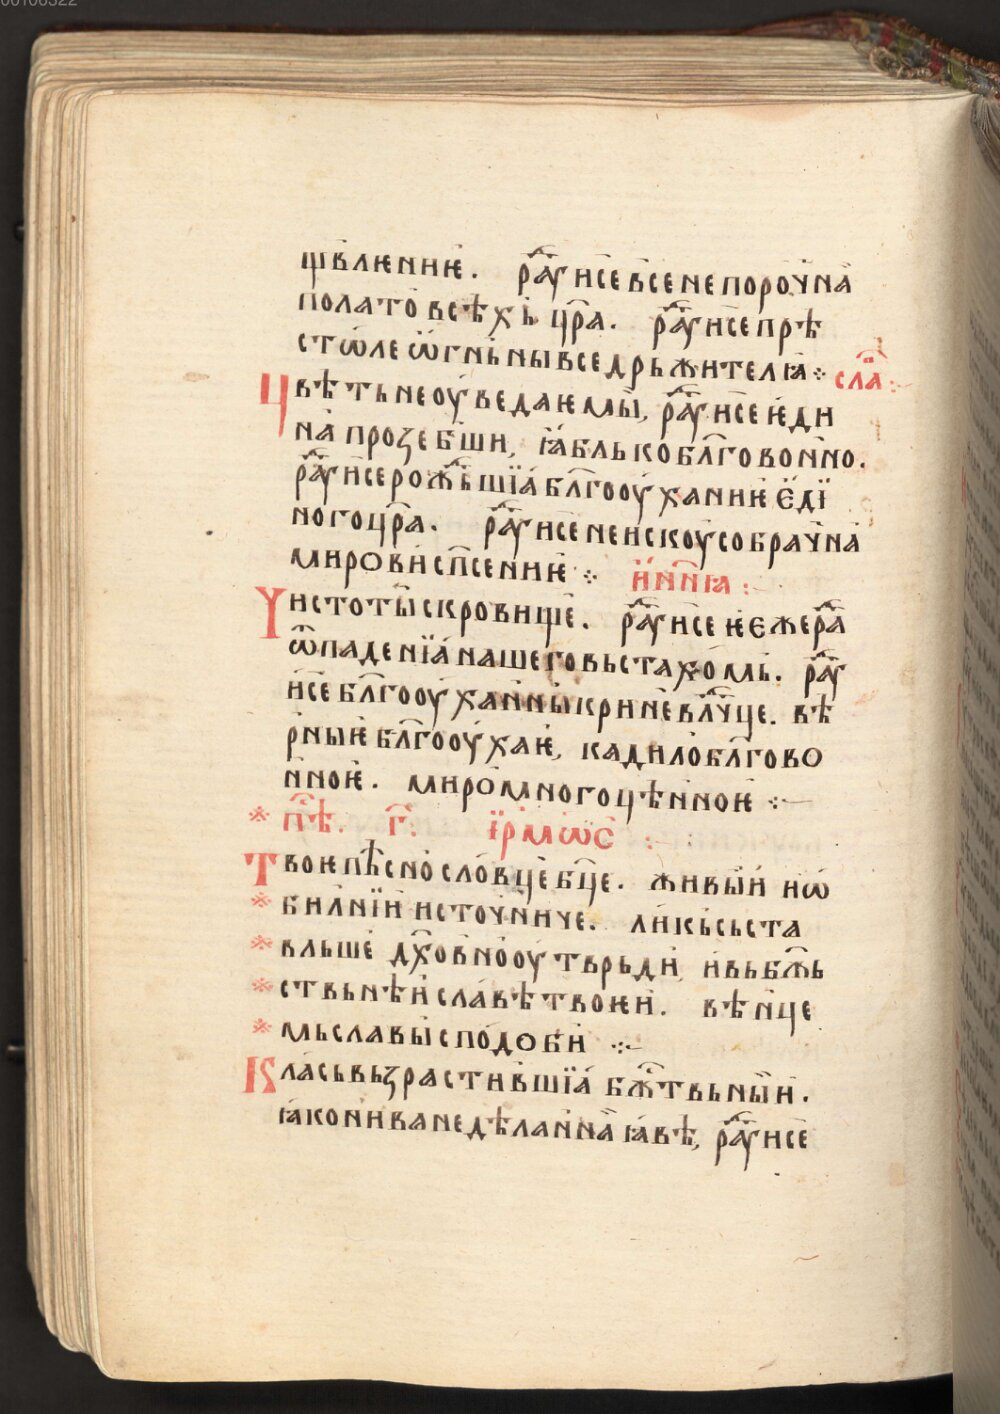 00108322
щвлѥниѥ. раⷣуисе всенепорочнаꙗ
полато всѣхь цр҃а. раⷣуисе прѣ
стѡле ѡгньны вседрьжителꙗ⁘ слаⷡ
Цвѣтьнеоувѣдаѥмы, раⷣуисе ѥди
на прозебши, ꙗблько блг҃овонно.
раⷣуисе рожⷣьшїа блг҃ооуханиѥ єдї
ного цр҃а. раⷣуисе неискоусобрачна
мирови сп҃сениѥ⁘ и нн҃ꙗ:
Чистоты скровище. раⷣуисе ѥѥжераⷣ
ѿ паденїа нашего вьстахомь. раⷣу
исе блг҃ооуханныкрине влⷣчце. вѣ
рныѥ блг҃ооухаѥ, кадило блг҃ово
нноѥ. миро многоцѣнноѥ⁘
пⷭ҇ѣ. г҃. їрмѡс:
Твоѥ пѣснословце бц҃е. живыи и нѡ
билнїи источниче. ликь сьста
вльше дх҃овно оутврьди, и вь бжⷭ҇ь
ствьнѣи славѣ твоѥи. вѣнце
мь славы сподоби⁘
Класьвьзрастившїа бжⷭ҇твьныи.
ꙗко нива неделаннаа ꙗвѣ, раⷣуисе